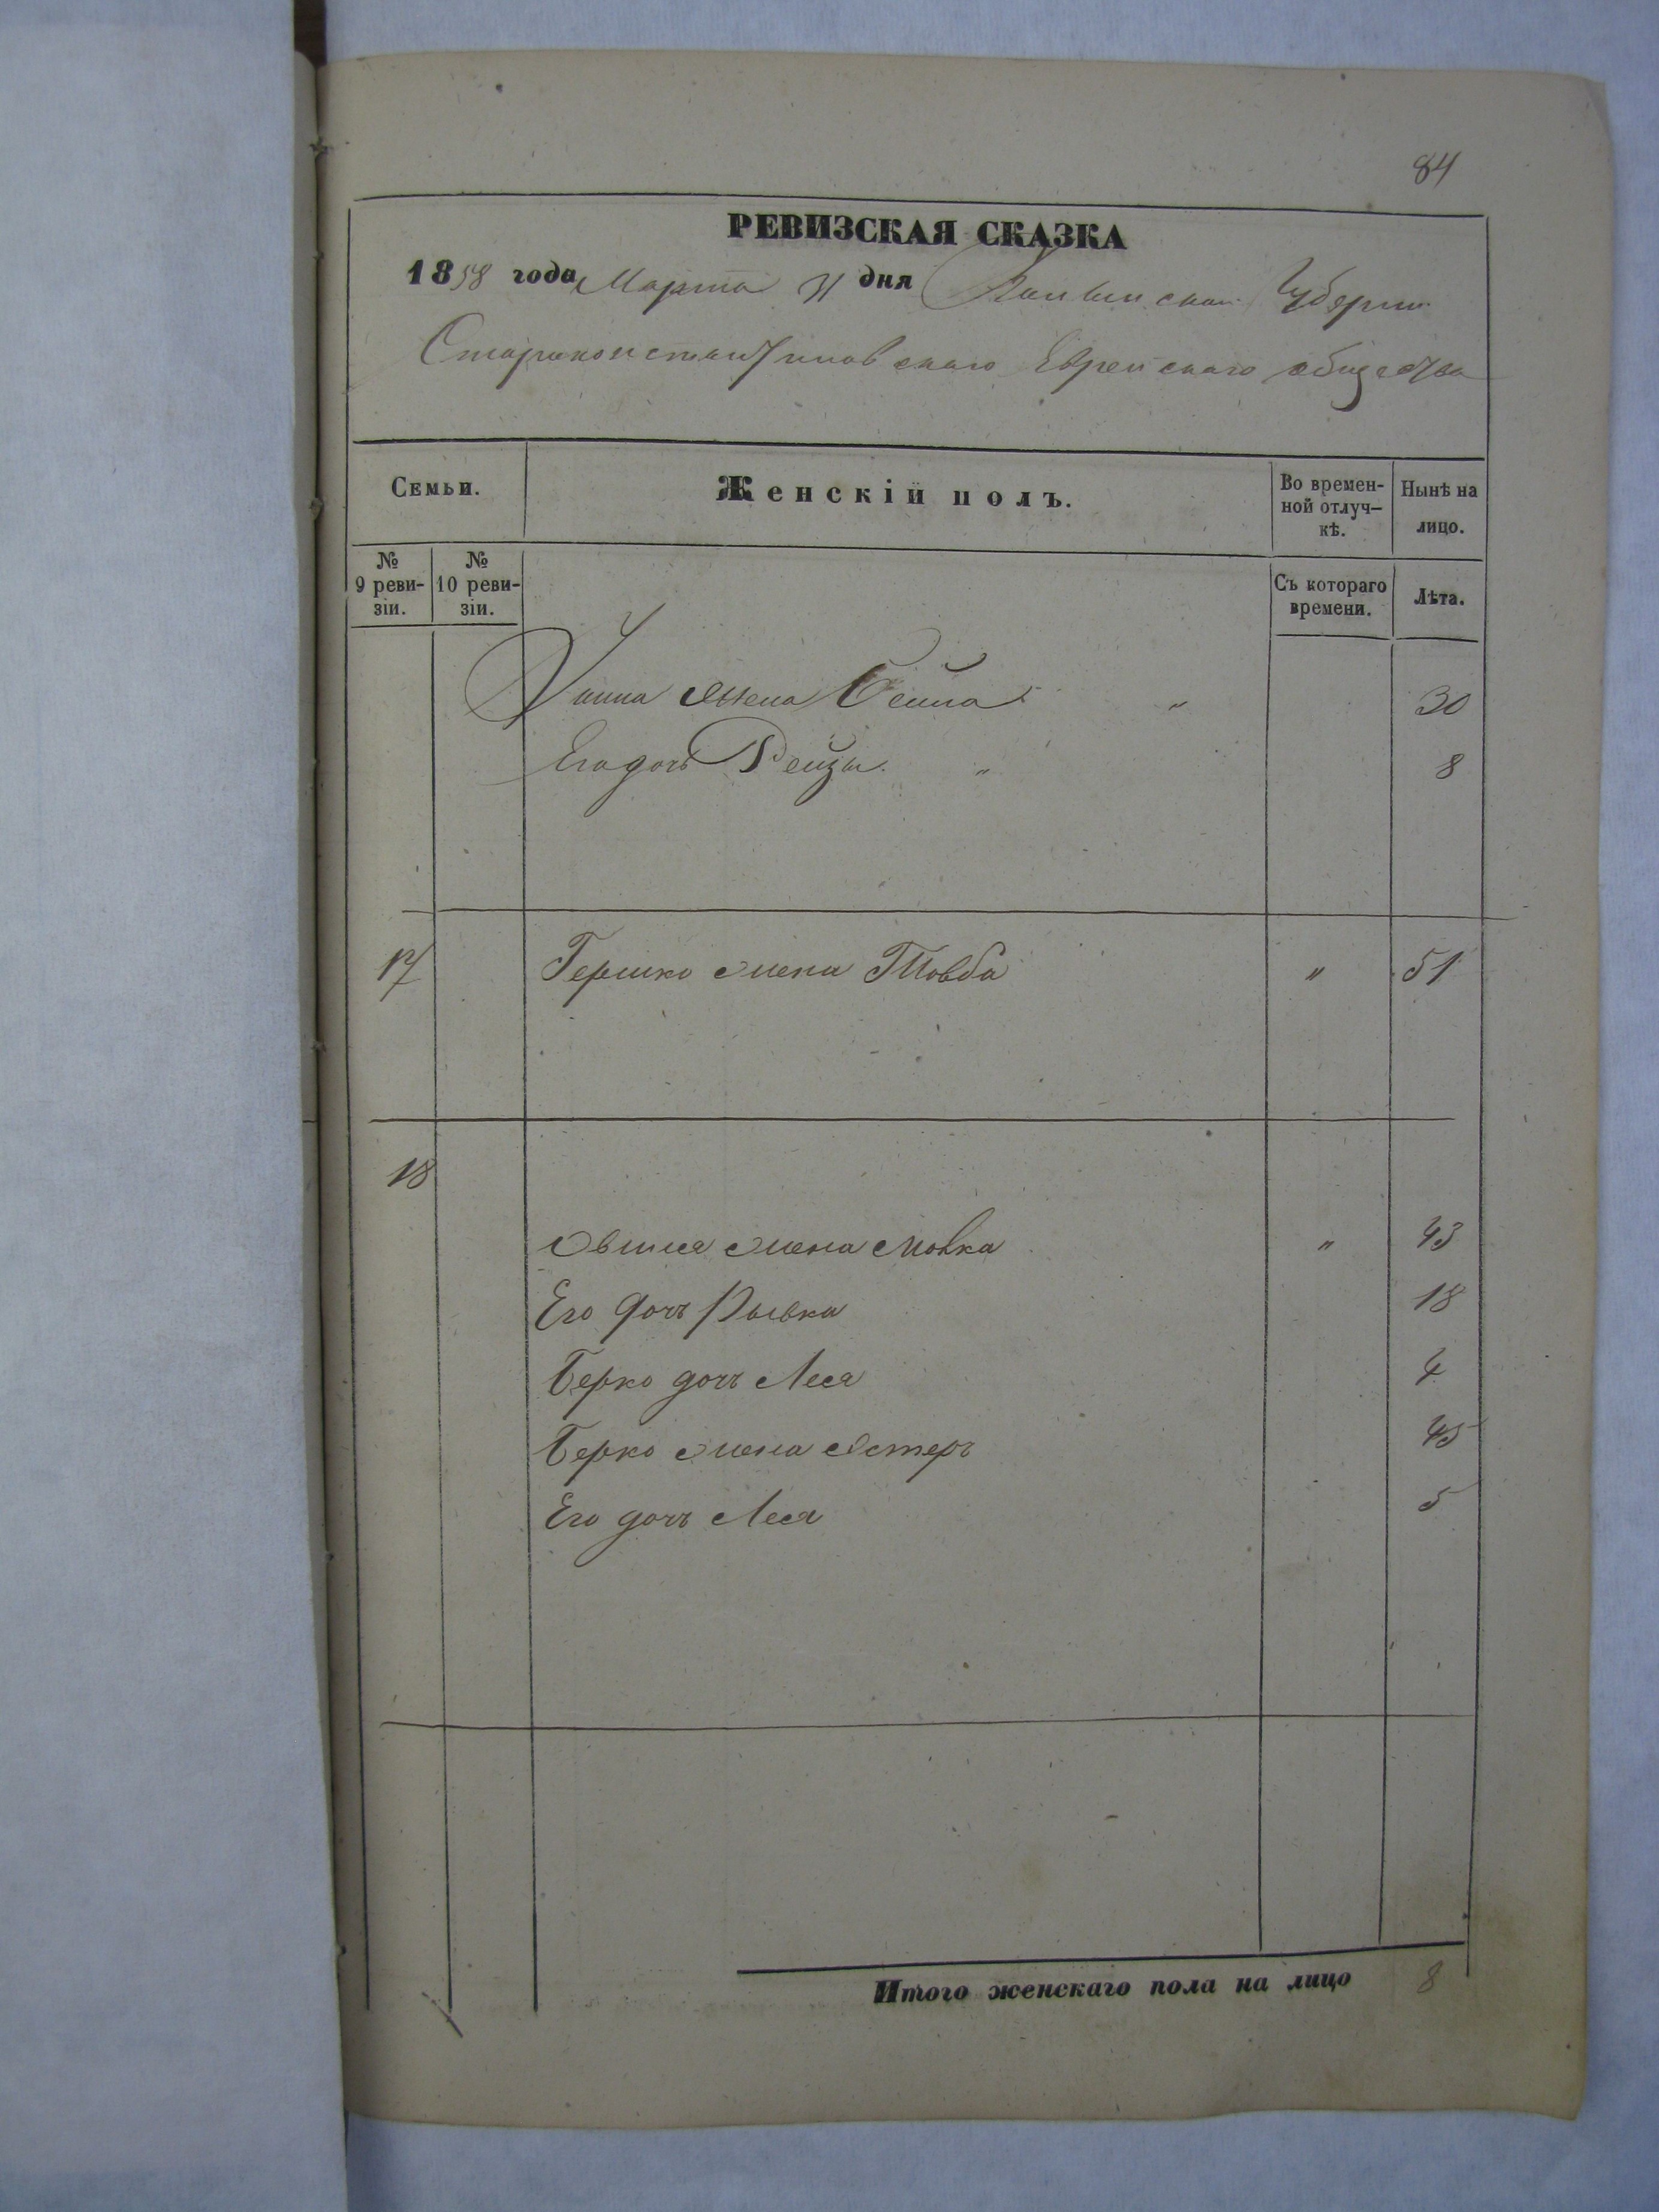 84
РЕВИЗСКАЯ СКАЗКА
1858 года Марта 31 дня Волынской Губерніи
Староконстантиновскаго Еврейскаго общества
Семьи.
Женскій полъ.
Во времен-
ной отлуч-
кѣ.
Нынѣ на
лицо.
№
9 реви-
зіи.
№
10 реви-
зіи.
Съ котораго
времени.
Лѣта.
жена Бейла " 30
Его дочь Рейзы " 8
17 Гершко жена Товба " 51
18
жена Мовка " 43
Его дочь Рывка 18
Берко дочь Лея 4
Берко жена Эстеръ 45
Его дочь Лея 5
Итого женскаго пола на лицо 8